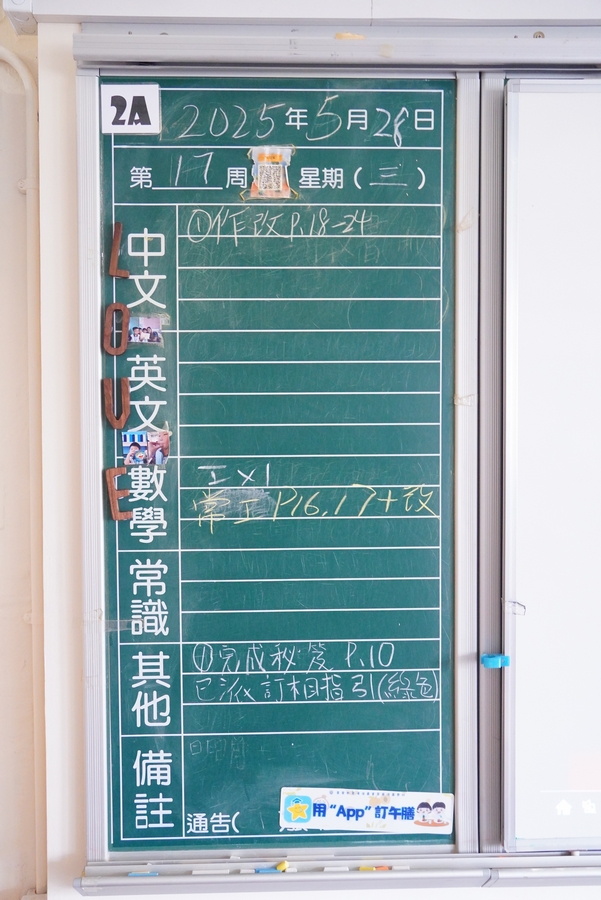 2A
2025年5月28日
第17周 星期(三)
LOVE
中文
①作改P.18-24
英文
數學
工x1
常工P16,17+改
常識
其他
①完成秘笈 P.10
已派訂相指引(綠色)
備註
通告(
用“App”訂午膳